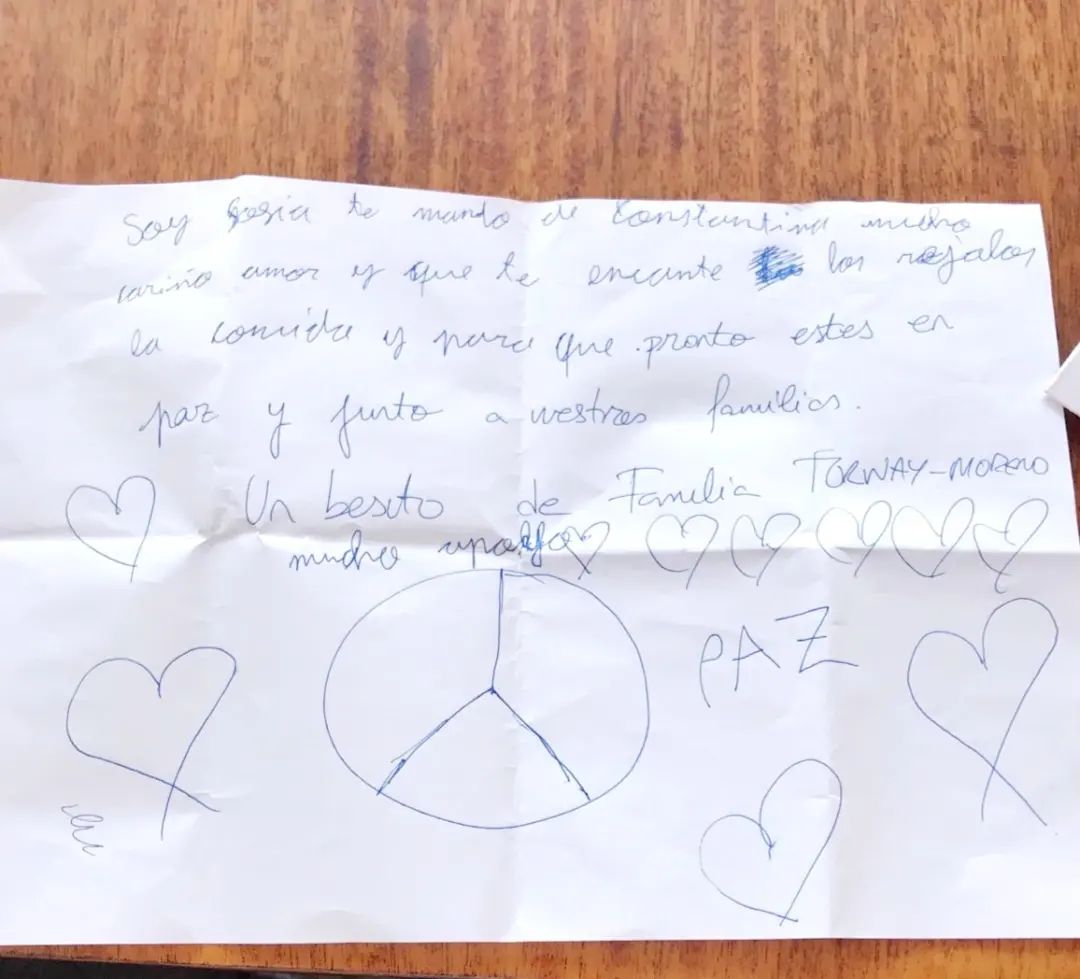 Soy te mando de Constantina mucho
cariño amor y que te encante los regalos
la comida y para que pronto estes en
paz y junto a vuestras familias.
Un besito de Familia TORWAY-MORENO
mucho apoyo
PAZ